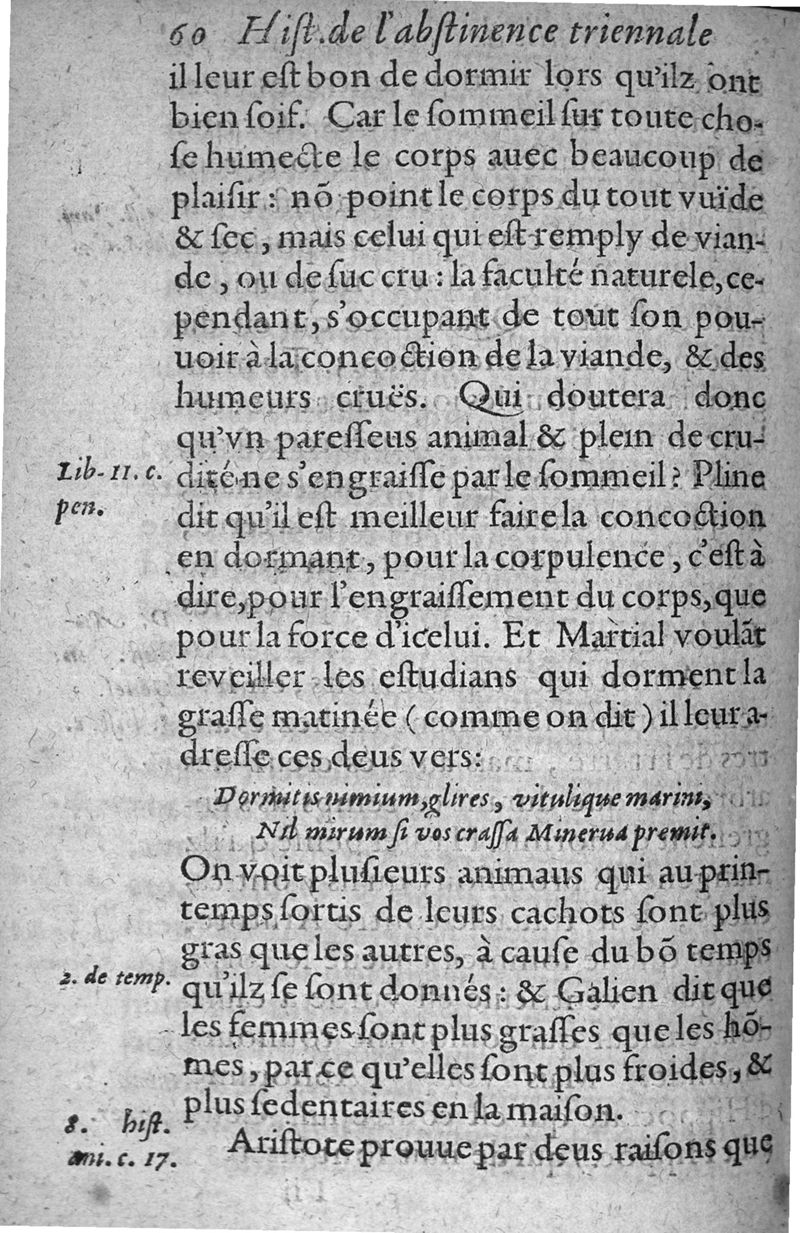 60 Hiſt.de l'abſtinence triennale
il leur eſt bon de dormir lors qu'ilz ont
bien ſoif. Car le ſommeil ſur toute cho-
ſe humecte le corps auec beaucoup de
plaiſir : nõ point le corps du tout vuïde
& ſec, mais celui qui eſt remply de vian-
de, ou de ſuc cru : la faculté naturele, ce-
pendant, s'occupant de tout ſon pou-
uoir à la concoction de la viande, & des
humeurs cruës. Qui doutera donc
qu'vn pareſſeus animal & plein de cru-
Lib-11. c. dité ne s'engraiſſe par le ſommeil? Pline
pen. dit qu'il eſt meilleur faire la concoction
en dormant, pour la corpulence, c'eſt à
dire, pour l'engraiſſement du corps, que
pour la force d'icelui. Et Martial voulãt
reveiller les eſtudians qui dorment la
graſſe matinée (comme on dit) il leur a-
dreſſe ces deus vers:
Dormitis nimium, glires, vitulique marini,
Nil mirum ſi vos craſſa Minerua premit.
On voit pluſieurs animaus qui au prin-
temps ſortis de leurs cachots ſont plus
gras que les autres, à cauſe du bõ temps
2. de temp. qu'ilz ſe ſont donnés : & Galien dit que
les femmes ſont plus graſſes que les hõ-
mes, par ce qu'elles ſont plus froides, &
plus ſedentaires en la maiſon.
8. hiſt.
ani. c. 17. Ariſtote prouue par deus raiſons que